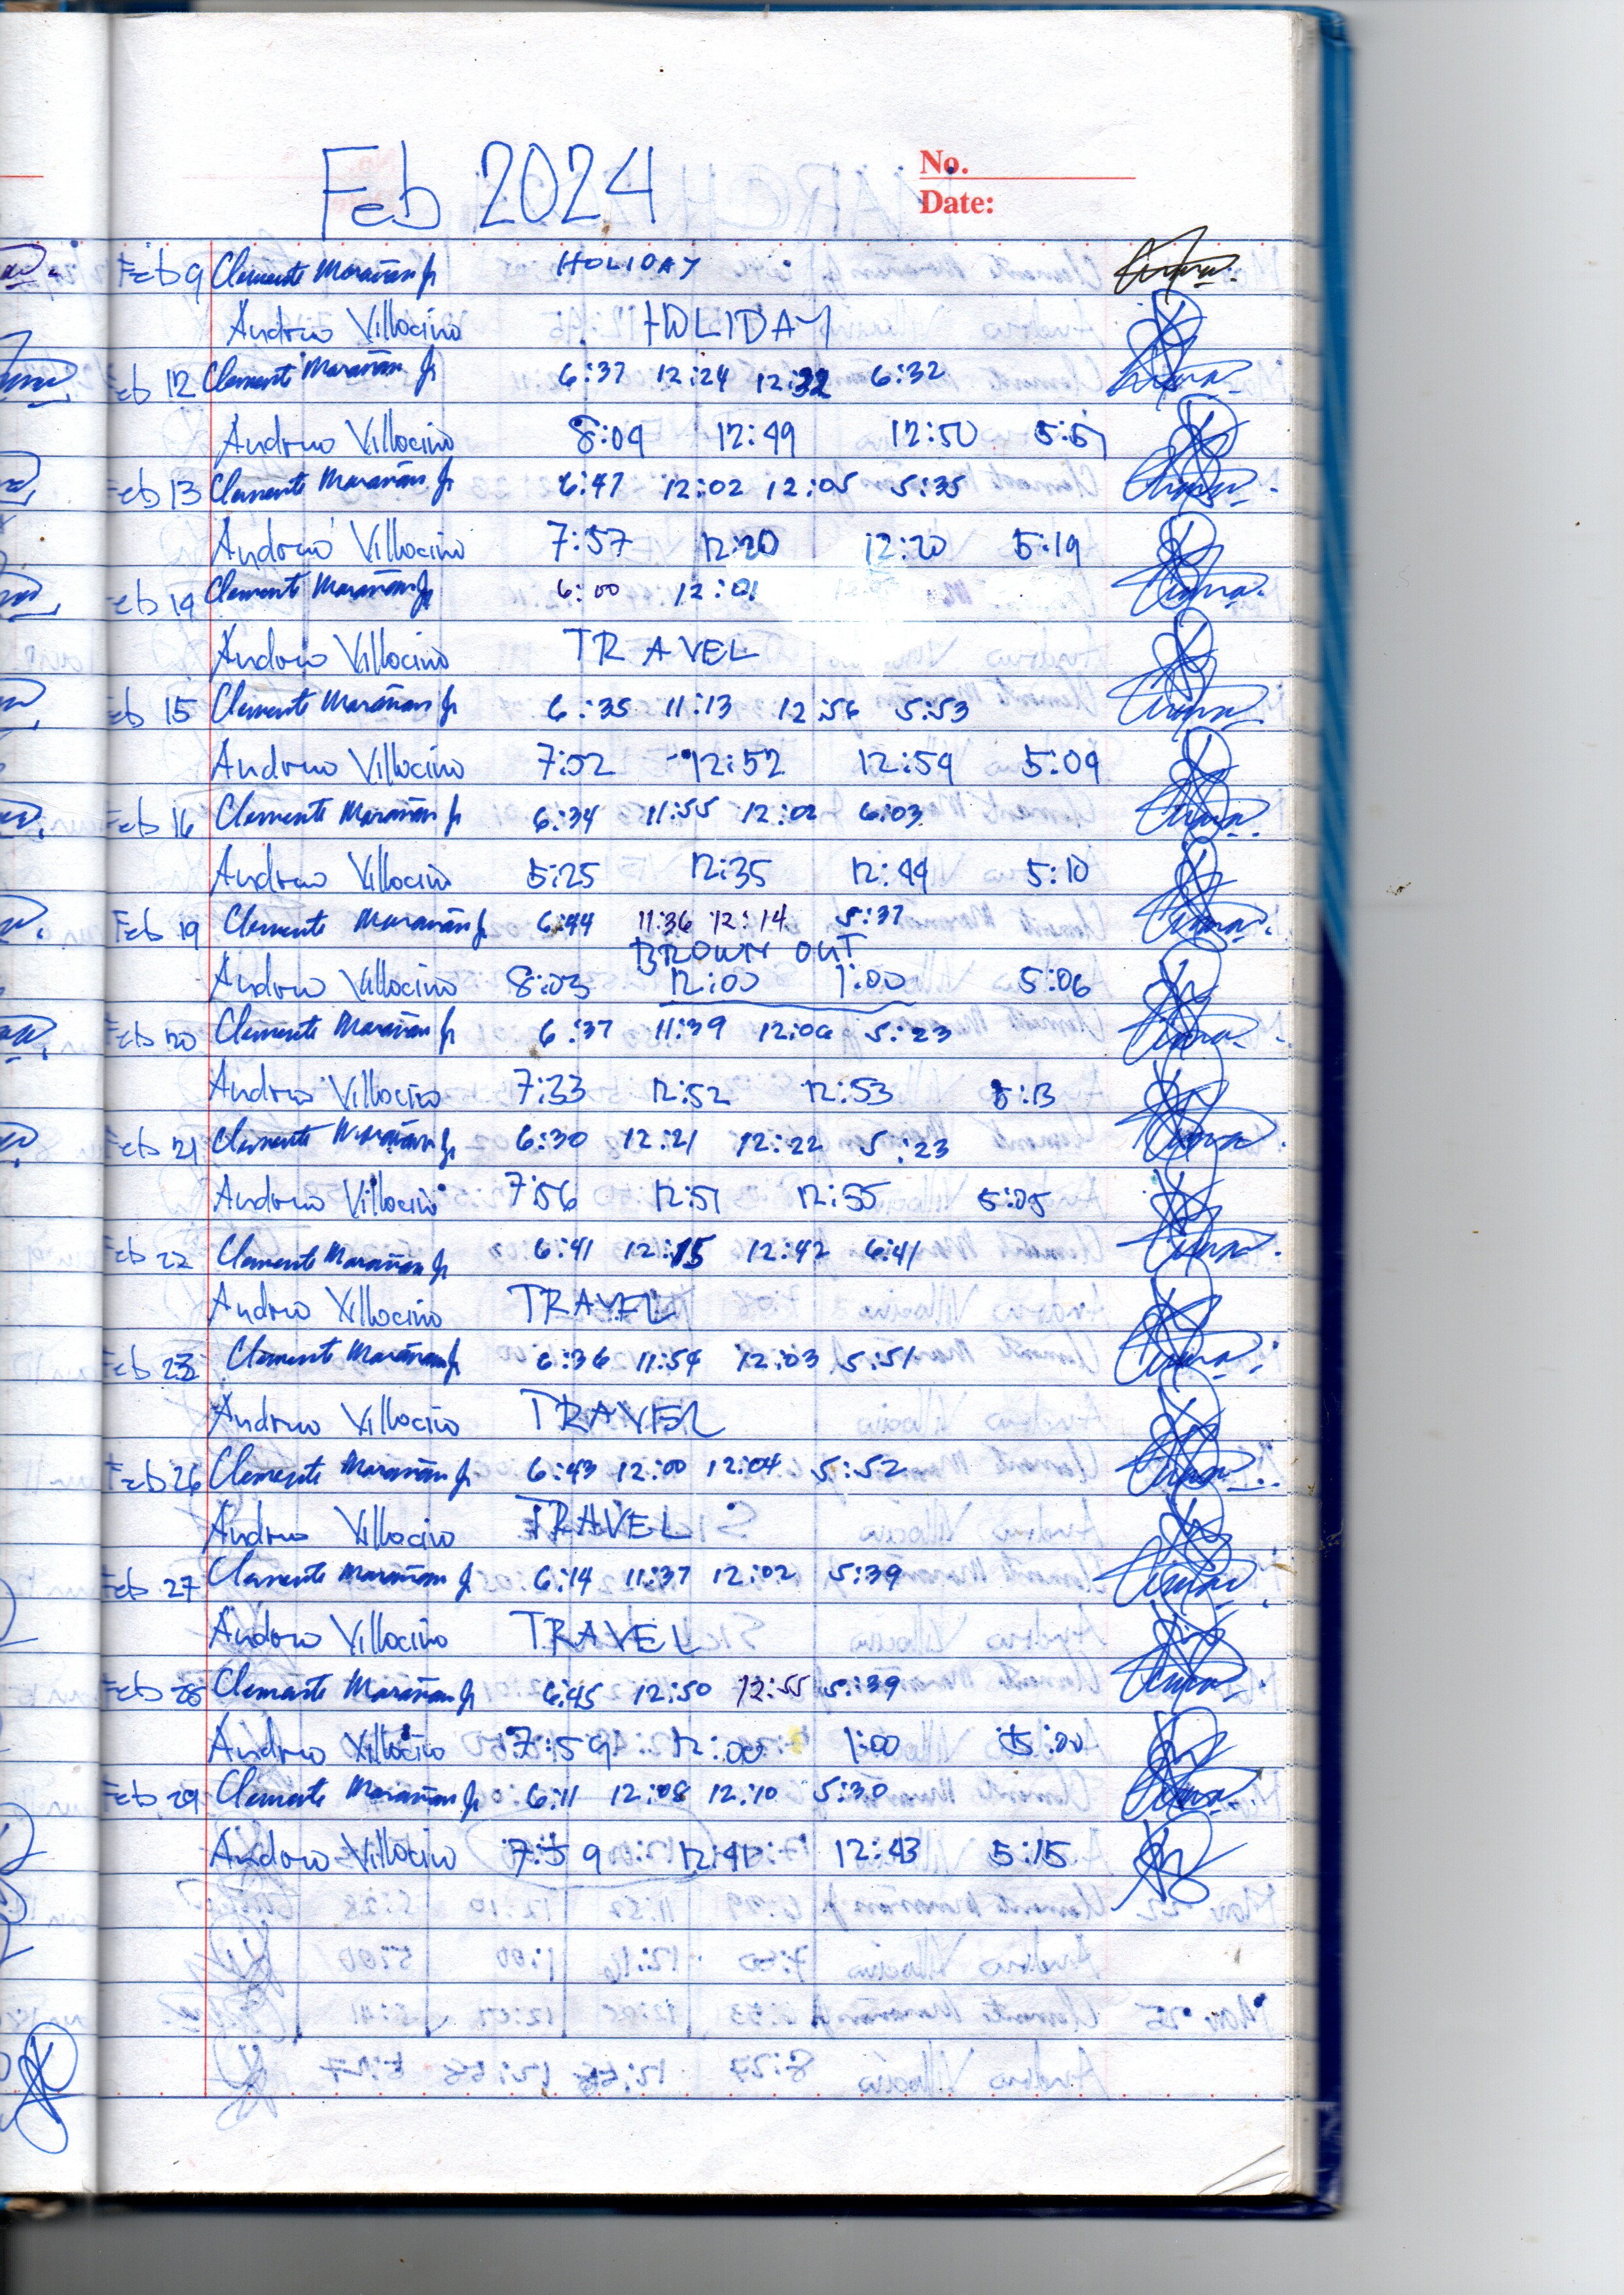 Feb 2024
No.
Date:
Feb 9 Clemente Marañan Jr HOLIDAY
Andrew Villocino HOLIDAY
Feb 12 Clemente Marañan Jr 6:37 12:24 12:32 6:32
Andrew Villocino 8:09 12:49 12:50 5:51
Feb 13 Clemente Marañan Jr 6:47 12:02 12:05 5:35
Andrew Villocino 7:57 12:20 12:20 5:19
Feb 14 Clemente Marañan Jr 6:00 12:01
Andrew Villocino TRAVEL
Feb 15 Clemente Marañan Jr 6:35 11:13 12:56 5:53
Andrew Villocino 7:02 12:52 12:59 5:09
Feb 16 Clemente Marañan Jr 6:34 11:55 12:02 6:03
Andrew Villocino 5:25 12:35 12:44 5:10
Feb 19 Clemente Marañan Jr 6:44 11:36 12:14 5:37
BROWN OUT
Andrew Villocino 8:03 12:00 1:00 5:06
Feb 20 Clemente Marañan Jr 6:37 11:39 12:06 5:23
Andrew Villocino 7:33 12:52 12:53 5:13
Feb 21 Clemente Marañan Jr 6:30 12:21 12:22 5:23
Andrew Villocino 7:56 12:51 12:55 5:05
Feb 22 Clemente Marañan Jr 6:41 12:15 12:42 6:41
Andrew Villocino TRAVEL
Feb 23 Clemente Marañan Jr 6:36 11:54 12:03 5:51
Andrew Villocino TRAVEL
Feb 26 Clemente Marañan Jr 6:43 12:00 12:04 5:52
Andrew Villocino TRAVEL
Feb 27 Clemente Marañan Jr 6:14 11:37 12:02 5:39
Andrew Villocino TRAVEL
Feb 28 Clemente Marañan Jr 6:45 12:50 12:55 5:39
Andrew Villocino 7:59 12:00 1:00 5:00
Feb 29 Clemente Marañan Jr 6:11 12:08 12:10 5:30
Andrew Villocino 7:59 12:41 12:43 5:15